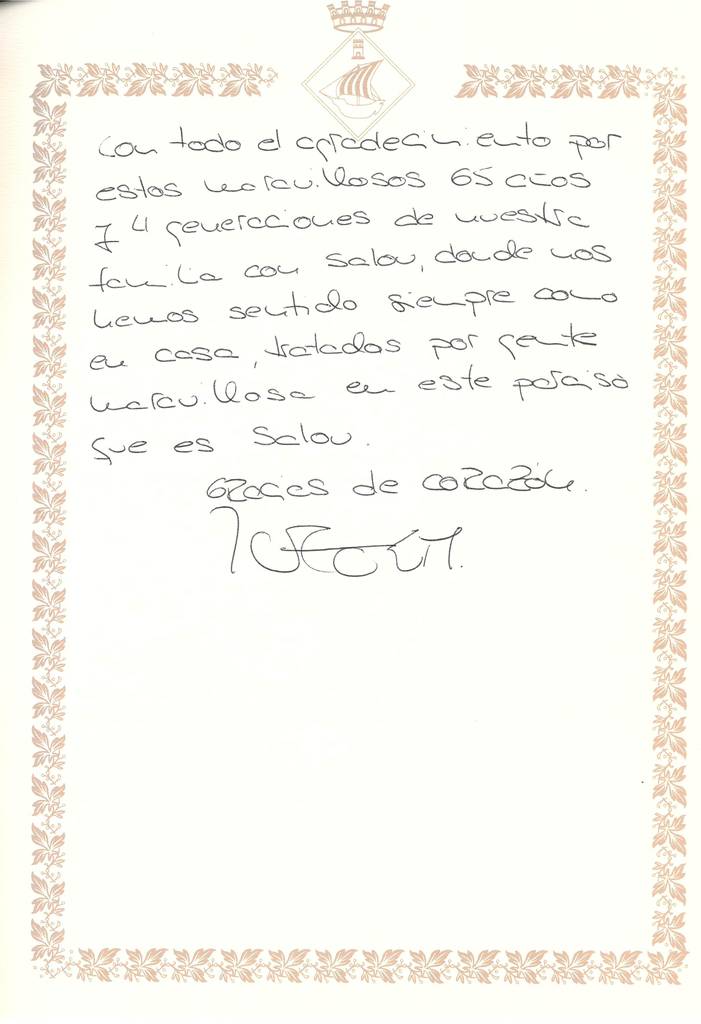 Con todo el agradecimiento por
estos maravillosos 65 años
y 4 generaciones de nuestra
familia con Salou, donde nos
hemos sentido siempre como
en casa, tratados por gente
maravillosa en este paraiso
que es Salou.
Gracias de corazón.